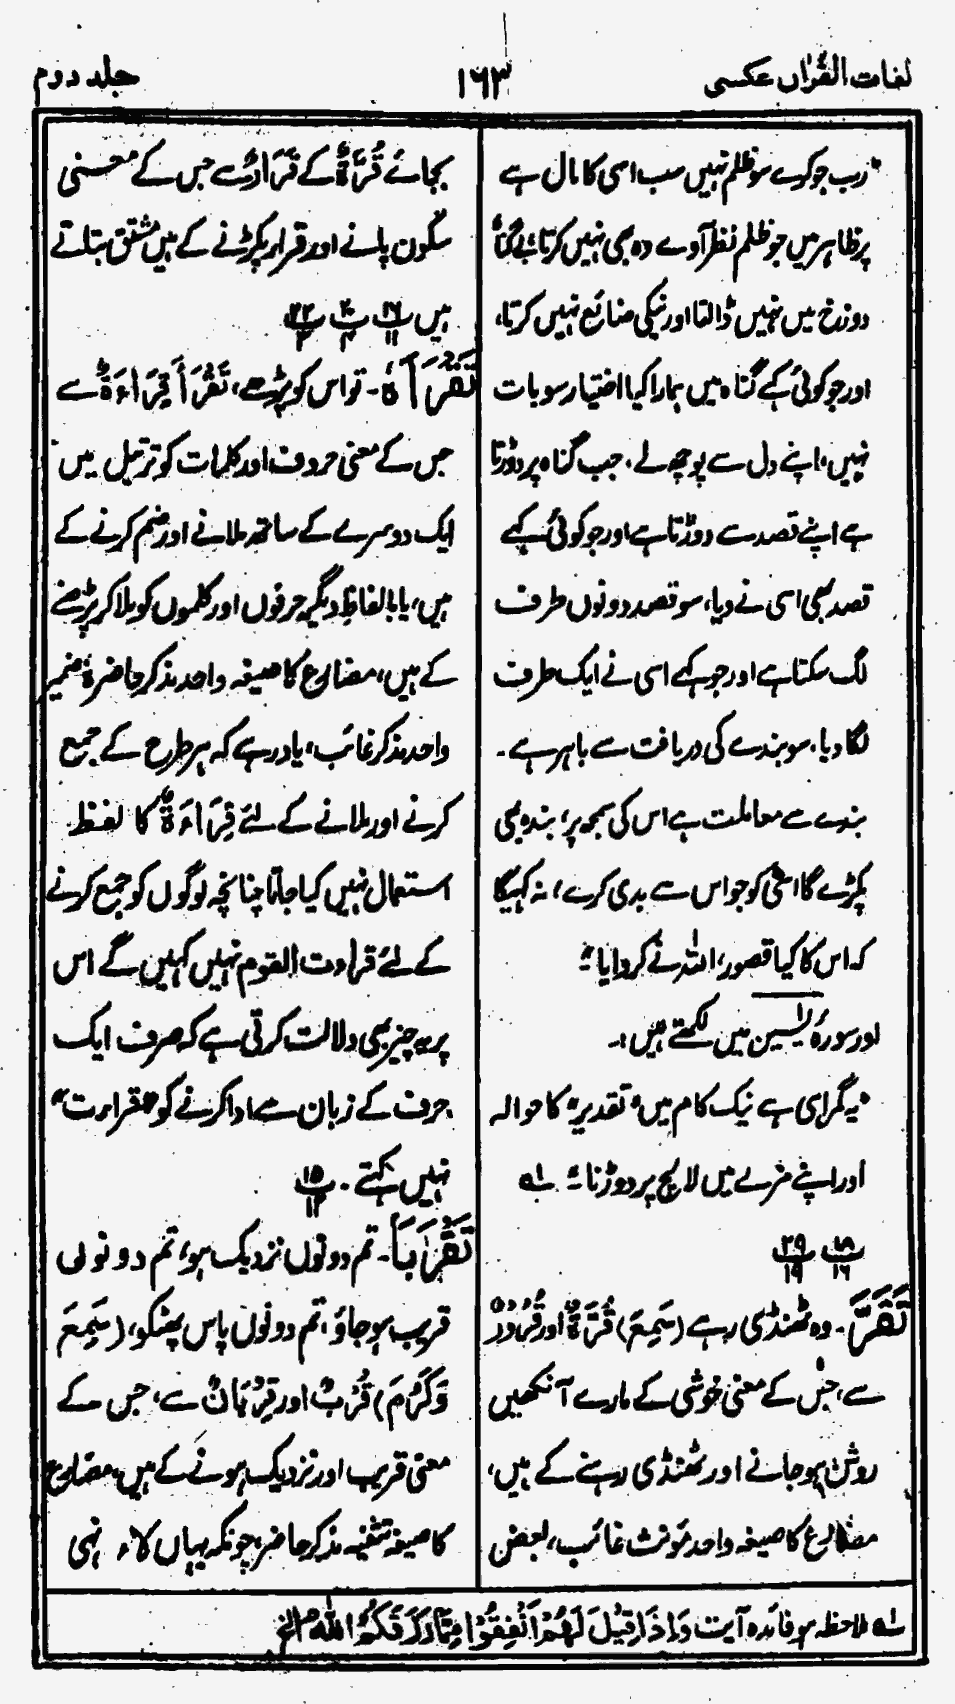 لغات القرآن عکسی
۱۶۳
جلد دوم
"رب جو کرے سو ظلم نہیں سب اسی کا مال ہے
پر ظاہر میں جو ظلم نظر آوے وہ بھی نہیں کرتا بے گناہ
دوزخ میں نہیں ڈالتا اور نیکی ضائع نہیں کرتا،
اور جو کوئی کہے گناہ میں ہمارا کیا اختیار سو بات
نہیں، اپنے دل سے پوچھ لے، جب گناہ پر دوڑتا
ہے اپنے قصد سے دوڑتا ہے اور جو کوئی کہے
قصد بھی اسی نے دیا، سو قصد دونوں طرف
لگ سکتا ہے اور جو کہے اسی نے ایک طرف
لگا دیا، سو بندے کی دریافت سے باہر ہے ۔
بندے سے معاملت ہے اس کی سمجھ پر، بندہ بھی
پکڑے گا اسی کو جو اس سے بدی کرے، نہ کہیگا
کہ اس کا کیا قصور، اللہ نے کروایا"
اور سورہ یٰسین میں لکھتے ہیں:۔
"یہ گمراہی ہے نیک کام میں تقدیر کا حوالہ
اور اپنے مزے میں لالچ پر دوڑنا" لہ
پ ۱۸/۱۶ پ ۲۹/۱۹
تَقَرَّ۔ وہ ٹھنڈی رہے (سَمِعَ) قُرَّةٌ اور قُرُوْرٌ
سے، جس کے معنی خوشی کے مارے آنکھیں
روشن ہو جانے اور ٹھنڈی رہنے کے ہیں،
مضارع کا صیغہ واحد مؤنث غائب، بعض
بجائے قُرَّةٌ کے قَرَارٌ سے جس کے معنی
سکون پانے اور قرار پکڑنے کے ہیں مشتق بتلاتے
ہیں پ ۱۶/۱۱ پ ۲۰/۴ پ ۲۲/۳
تَقْرَأَهٗ۔ تو اس کو پڑھے، تَقْرَأَ قِرَاءَةٌ سے
جس کے معنی حروف اور کلمات کو ترتیل میں
ایک دوسرے کے ساتھ ملانے اور ضم کرنے کے
ہیں، یا بالفاظِ دیگر حرفوں اور کلموں کو ملا کر پڑھنے
کے ہیں، مضارع کا صیغہ واحد مذکر حاضر ہٗ ضمیر
واحد مذکر غائب، یاد رہے کہ ہر طرح کے جمع
کرنے اور ملانے کے لئے قِرَاءَةٌ کا لفظ
استعمال نہیں کیا جاتا چنانچہ لوگوں کو جمع کرنے
کے لئے قراءت القوم نہیں کہیں گے اس
پر یہ چیز بھی دلالت کرتی ہے کہ صرف ایک
حرف کے زبان سے ادا کرنے کو "قراءت"
نہیں کہتے ۔ پ ۱۵/۱۲
تَقْرَبَا۔ تم دونوں نزدیک ہو، تم دونوں
قریب ہو جاؤ، تم دونوں پاس پھٹکو، (سَمِعَ
وَکَرُمَ) قُرْبٌ اور قِرْبَانٌ سے، جس کے
معنی قریب اور نزدیک ہونے کے ہیں، مضارع
کا صیغہ تثنیہ مذکر حاضر، چونکہ یہاں لاء نہی
لہ ملاحظہ ہو فائدہ آیت وَاِذَا قِیْلَ لَهُمْ اَنْفِقُوْا مِمَّا رَزَقَکُمُ اللّٰهُ الخ